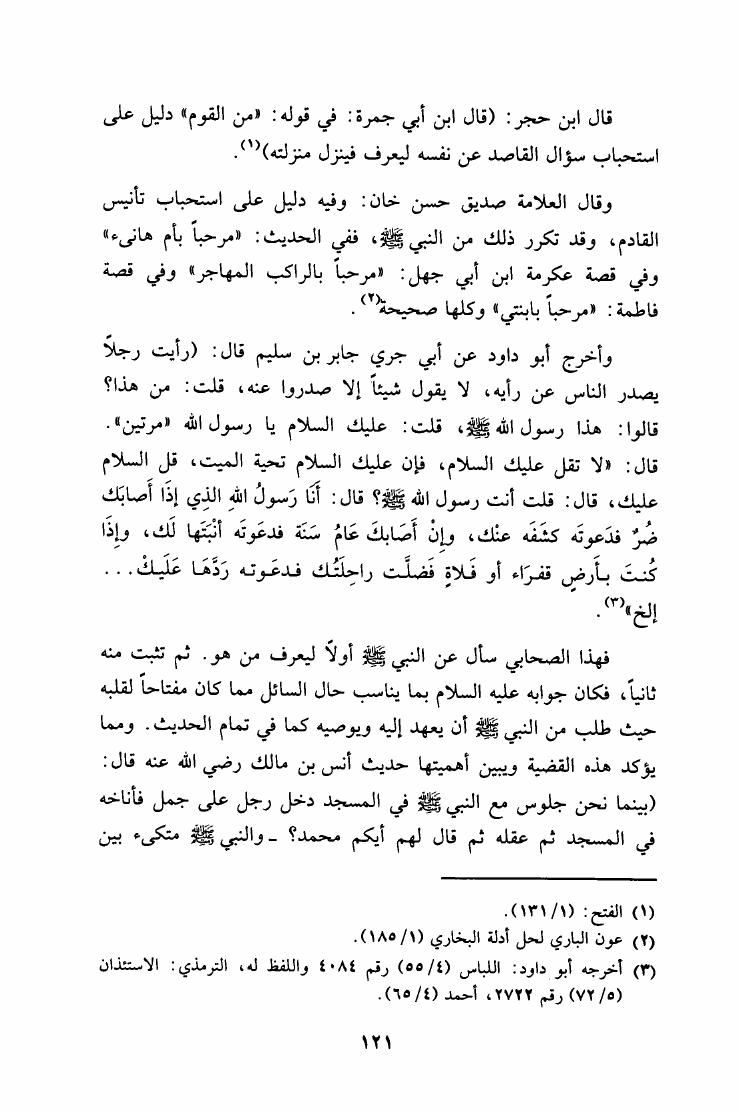 قال ابن حجر: (قال ابن أبي جمرة: في قوله: «من القوم» دليل على
استحباب سؤال القاصد عن نفسه ليعرف فينزل منزلته)(١).
وقال العلامة صديق حسن خان: وفيه دليل على استحباب تأنيس
القادم، وقد تكرر ذلك من النبي ﷺ، ففي الحديث: «مرحباً بأم هانىء»
وفي قصة عكرمة ابن أبي جهل: «مرحباً بالراكب المهاجر» وفي قصة
فاطمة: «مرحباً بابنتي» وكلها صحيحة(٢).
وأخرج أبو داود عن أبي جري جابر بن سليم قال: (رأيت رجلاً
يصدر الناس عن رأيه، لا يقول شيئاً إلا صدروا عنه، قلت: من هذا؟
قالوا: هذا رسول الله ﷺ، قلت: عليك السلام يا رسول الله «مرتين».
قال: «لا تقل عليك السلام، فإن عليك السلام تحية الميت، قل السلام
عليك، قال: قلت أنت رسول الله ﷺ؟ قال: أَنَا رَسولُ اللهِ الذِي إذَا أَصابَك
ضُرٌ فدَعوتَه كشَفَه عنْك، وإنْ أَصَابكَ عَامُ سَنَة فدعَوتَه أنْبَتَها لَك، وإذَا
كُنتَ بـأَرضٍ قفـرَاء أو فَـلاةٍ فَضلَّـت راحِلَتُـك فـدعَـوتـه رَدَّهَـا عَلَيـكْ...
إلخ»(٣).
فهذا الصحابي سأل عن النبي ﷺ أولاً ليعرف من هو. ثم تثبت منه
ثانياً، فكان جوابه عليه السلام بما يناسب حال السائل مما كان مفتاحاً لقلبه
حيث طلب من النبي ﷺ أن يعهد إليه ويوصيه كما في تمام الحديث. ومما
يؤكد هذه القضية ويبين أهميتها حديث أنس بن مالك رضي الله عنه قال:
(بينما نحن جلوس مع النبي ﷺ في المسجد دخل رجل على جمل فأناخه
في المسجد ثم عقله ثم قال لهم أيكم محمد؟ ـ والنبي ﷺ متكىء بين
(١) الفتح: (١/ ١٣١).
(٢) عون الباري لحل أدلة البخاري (١/ ١٨٥).
(٣) أخرجه أبو داود: اللباس (٤/ ٥٥) رقم ٤٠٨٤ واللفظ له، الترمذي: الاستئذان
(٥/ ٧٢) رقم ٢٧٢٢، أحمد (٤/ ٦٥).
١٢١